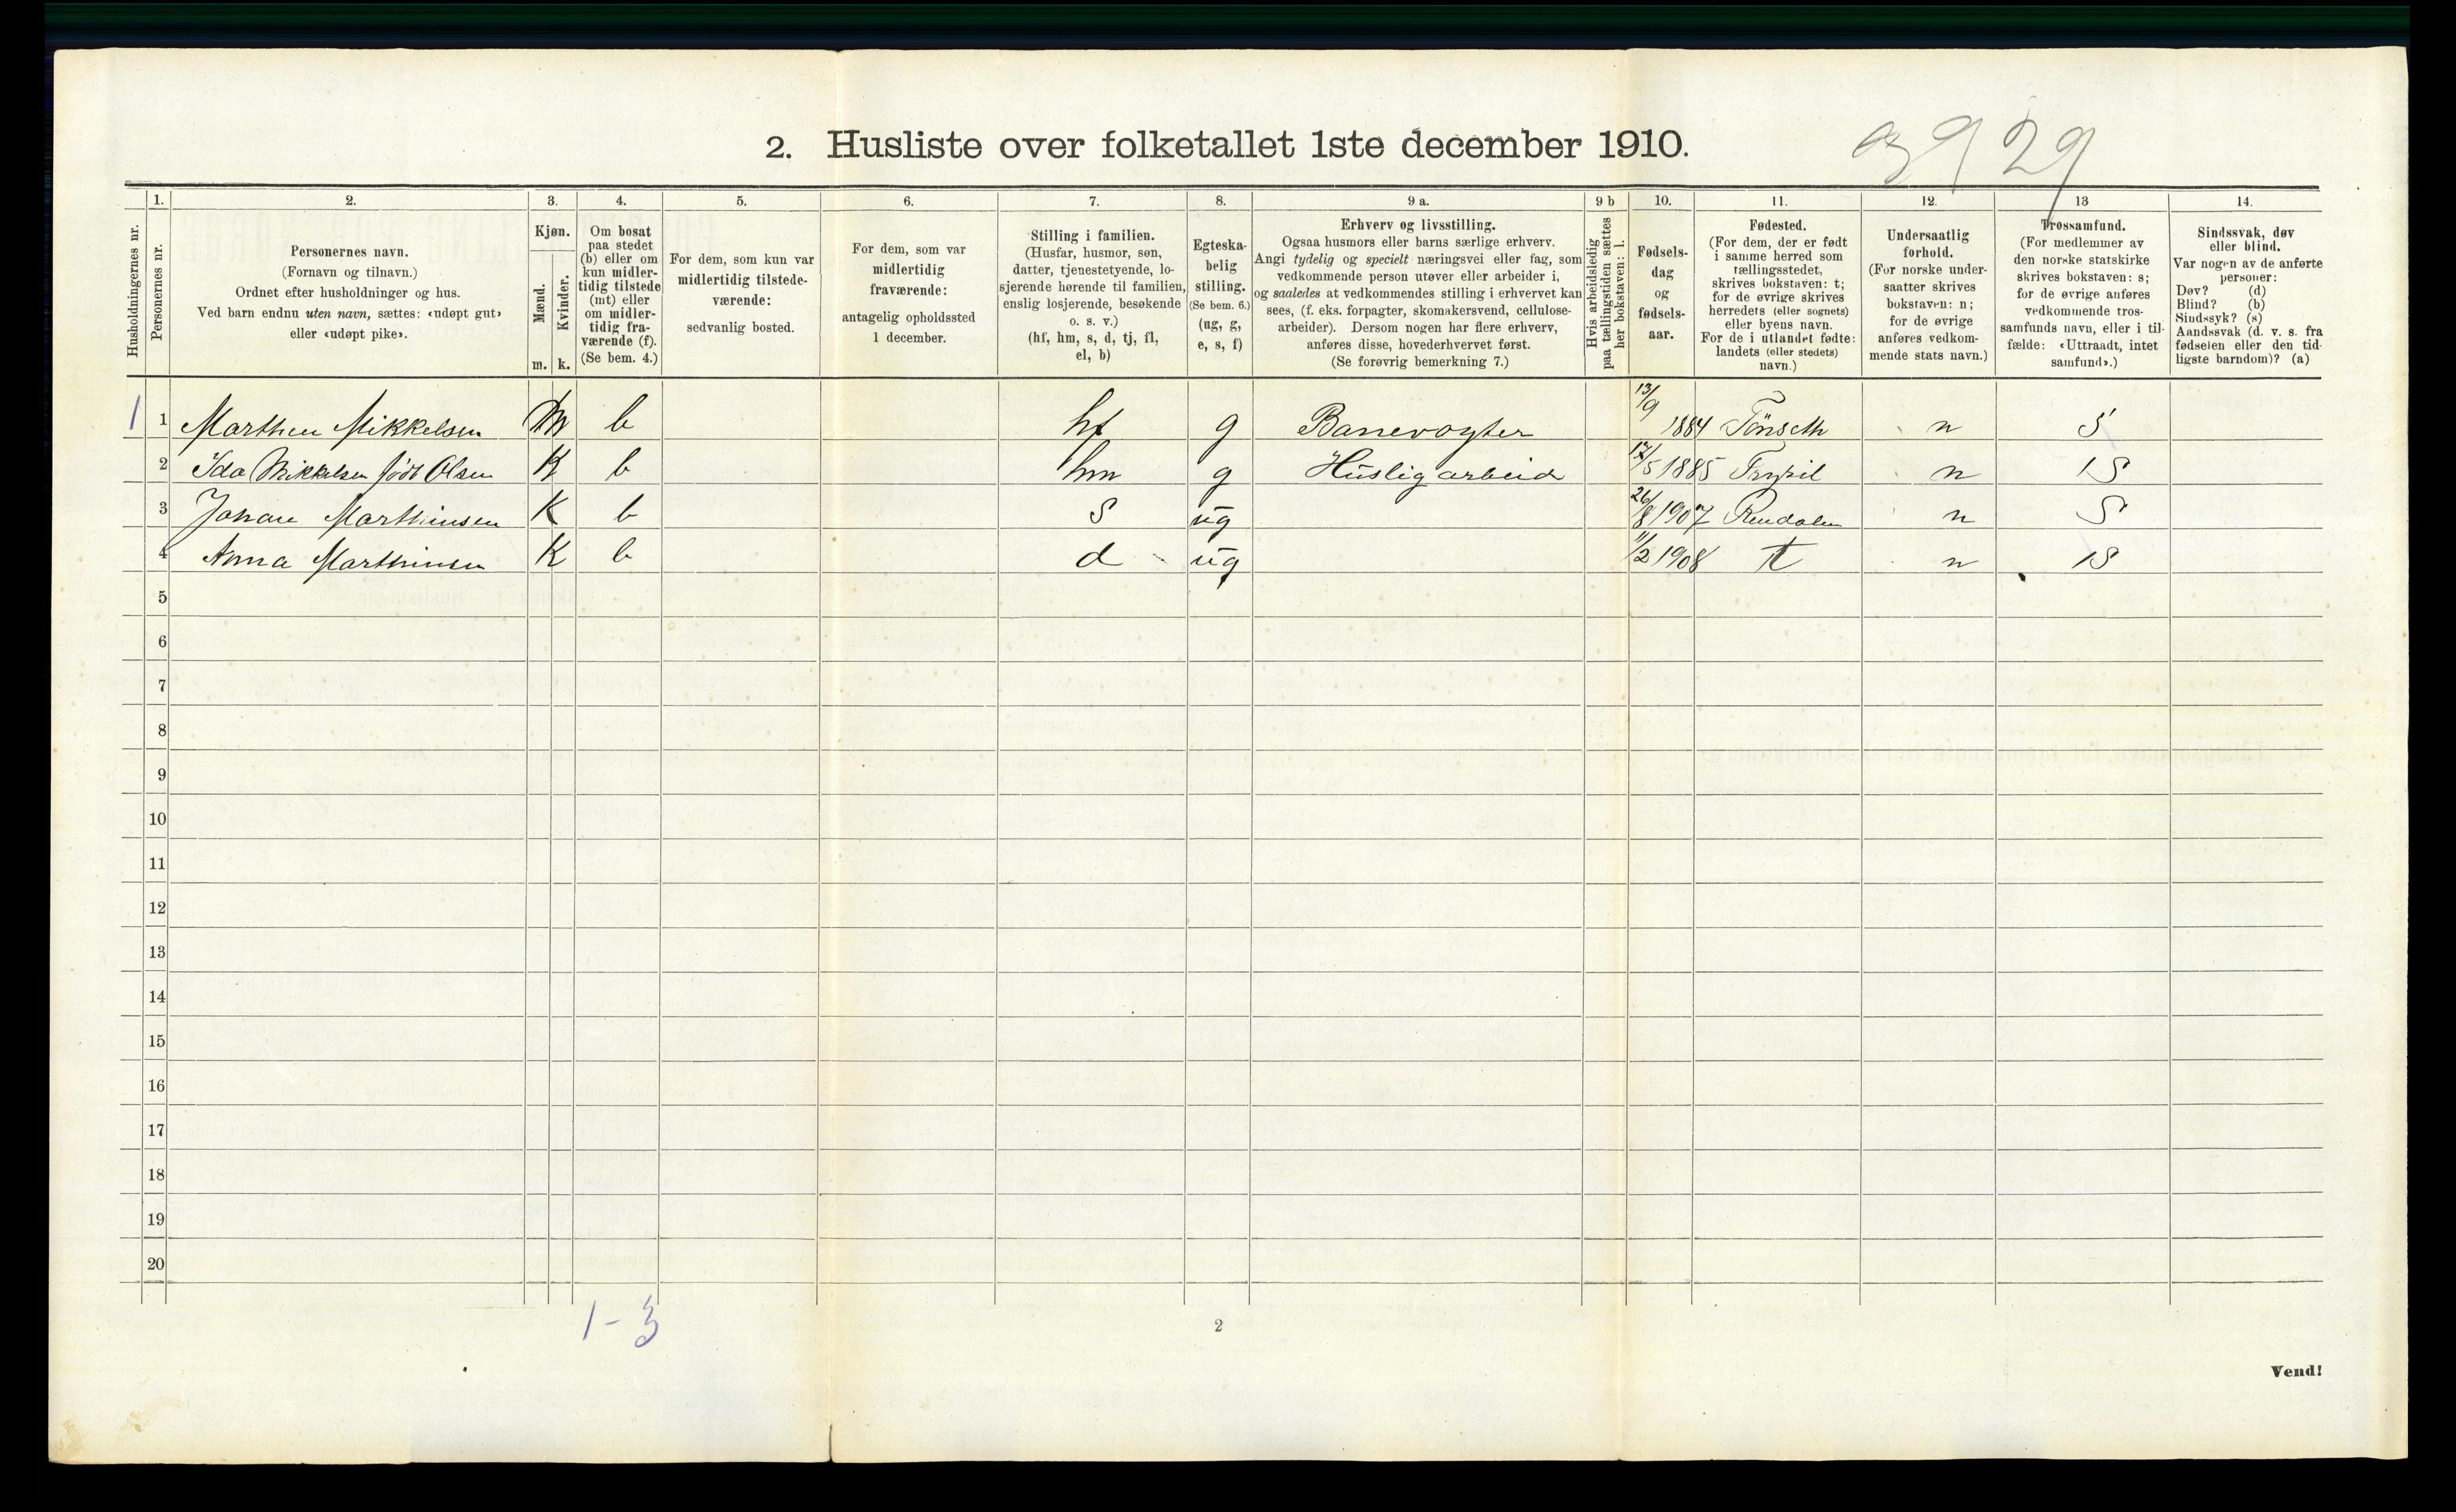 2. Husliste over folketallet 1ste december 1910.
1. 2. 3. 4. 5. 6. 7. 8. 9 a. 9 b 10. 11. 12. 13 14.
Husholdningernes nr.
Personernes nr.
Personernes navn.
(Fornavn og tilnavn.)
Ordnet efter husholdninger og hus.
Ved barn endnu uten navn, sættes: «udøpt gut»
eller «udøpt pike».
Kjøn.
Mænd.
Kvinder.
m. k.
Om bosat
paa stedet
(b) eller om
kun midler-
tidig tilstede
(mt) eller
om midler-
tidig fra-
værende (f).
(Se bem. 4.)
For dem, som kun var
midlertidig tilstede-
værende:
sedvanlig bosted.
For dem, som var
midlertidig
fraværende:
antagelig opholdssted
1 december.
Stilling i familien.
(Husfar, husmor, søn,
datter, tjenestetyende, lo-
sjerende hørende til familien,
enslig losjerende, besøkende
o. s. v.)
(hf, hm, s, d, tj, fl,
el, b)
Egteska-
belig
stilling.
(Se bem. 6.)
(ug, g,
e, s, f)
Erhverv og livsstilling.
Ogsaa husmors eller barns særlige erhverv.
Angi tydelig og specielt næringsvei eller fag, som
vedkommende person utøver eller arbeider i,
og saaledes at vedkommendes stilling i erhvervet kan
sees, (f. eks. forpagter, skomakersvend, cellulose-
arbeider). Dersom nogen har flere erhverv,
anføres disse, hovederhvervet først.
(Se forøvrig bemerkning 7.)
Hvis arbeidsledig
paa tællingstiden sættes
her bokstaven: l.
Fødsels-
dag
og
fødsels-
aar.
Fødested.
(For dem, der er født
i samme herred som
tællingsstedet,
skrives bokstaven: t;
for de øvrige skrives
herredets (eller sognets)
eller byens navn.
For de i utlandet fødte:
landets (eller stedets)
navn.)
Undersaatlig
forhold.
(For norske under-
saatter skrives
bokstaven: n;
for de øvrige
anføres vedkom-
mende stats navn.)
Trossamfund.
(For medlemmer av
den norske statskirke
skrives bokstaven: s;
for de øvrige anføres
vedkommende tros-
samfunds navn, eller i til-
fælde: «Uttraadt, intet
samfund».)
Sindssvak, døv
eller blind.
Var nogen av de anførte
personer:
Døv? (d)
Blind? (b)
Sindssyk? (s)
Aandssvak (d. v. s. fra
fødselen eller den tid-
ligste barndom)? (a)
1 1 Marthin Mikkelsen m b hf g Banevogter 13/9 1884 Tönseth n S
2 Ida Mikkelsen född Olsen K b hm g Huslig arbeid 17/5 1885 Trysil n S
3 Johan Marthinsen K b S ug 26/8 1907 Rendalen n S
4 Anna Marthinsen K b d ug 11/2 1908 t n S
5
6
7
8
9
10
11
12
13
14
15
16
17
18
19
20
1-3
2
Vend!